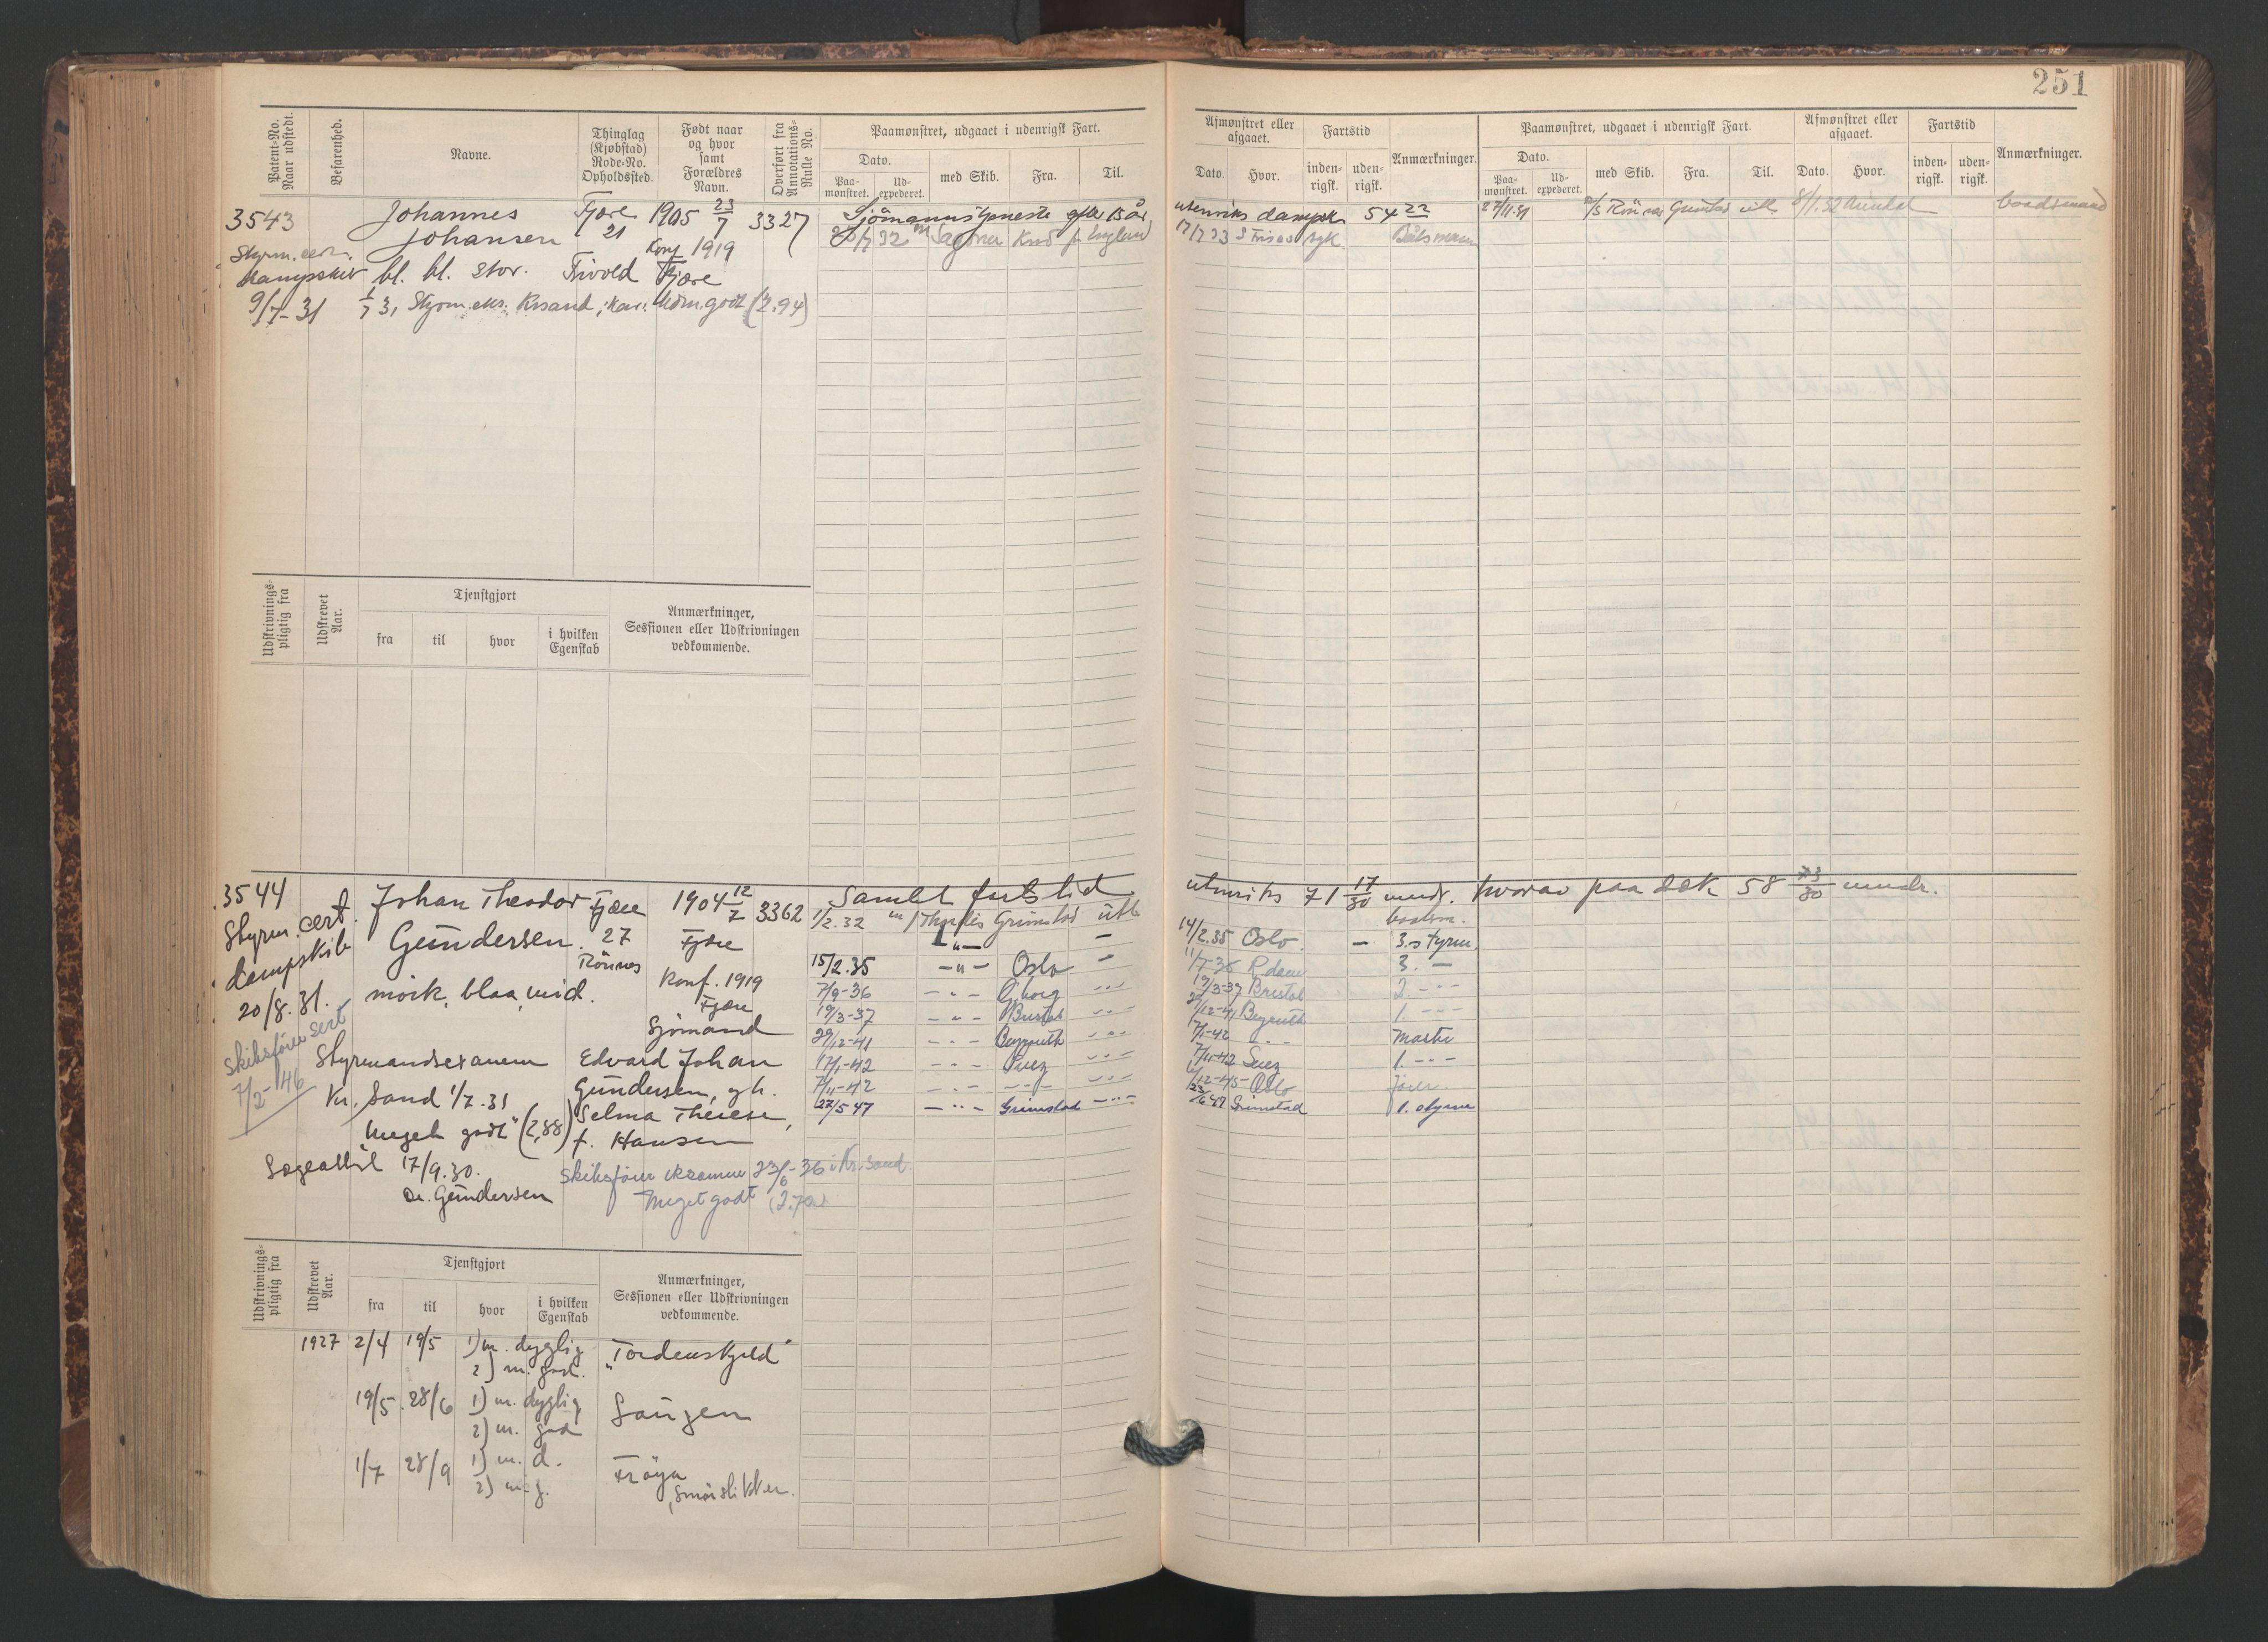 251
Patent-No. Naar udstedt.
Befarenhed.
Navne.
Thinglag (Kjøbstad) Rode-No. Opholdssted.
Født naar og hvor samt Forældres Navn.
Overført fra Annotations-Rulle No.
Paamønstret, udgaaet i udenrigsk Fart.
Dato.
Paa-mønstret.
Ud-expederet.
med Skib.
Fra.
Til.
Afmønstret eller afgaaet.
Dato.
Hvor.
Fartstid
inden-rigsk.
uden-rigsk.
Anmærkninger.
Paamønstret, udgaaet i udenrigsk Fart.
Dato.
Paa-mønstret.
Ud-expederet.
med Skib.
Fra.
Til.
Afmønstret eller afgaaet.
Dato.
Hvor.
Fartstid
inden-rigsk.
uden-rigsk.
Anmærkninger.
3543 Johannes Fjære 1905 23/7 3327 Sjömannstjeneste efter 15 år utenriks dampsk 54 22 27/11.31 Grimstad utl. 8/1.32 Arendal baadsmand
Johansen 21 Konf 1919
17/7 33 syk. Båtsmann
Styrm. cert.
dampskib bl. bl. stor. Fivold Fjære
9/7-31 1/7 31 Styrm.eks. Krsand, kar. (2.94)
Udskrivnings-pligtig fra
Udskrevet Aar.
Tjenstgjort
fra
til
hvor
i hvilken Egenskab
Anmærkninger, Sessionen eller Udskrivningen vedkommende.
3544 Johan Theodor Fjære 1904 12/7 3362 Samlet fartstid utenriks 71 17/30 mndr. hvorav paa dæk 58 23/30 mndr.
Styrm. cert. Gundersen. 27 Fjære 1/2.32 Grimstad utl.
dampskib Rönnes 14/2.35 Oslo. — 3. styrm.
20/8.31. mörk, blaa, mid. Konf. 1919 Fjære 15/2.35 —"— Oslo — 11/7-36 R.dam 3. —
7/9-36 —"— G.borg —"— 19/3-37 Bristol 2. —"—
Skibsförer sert 7/2-46 Sjömand 19/3-37 —"— Bristol —"— 29/12-41 Beyruth 1. —"—
29/12-41 —"— Beyruth —"— 17/1-42 —"— Master
Styrmandsexamen Edvard Johan 17/1-42 —"— Suez —"— 7/11-42 Suez 1. —"—
Kr.sand 1/7.31 Gundersen, gh. 7/11-42 —"— —"— —"— 12-45 Oslo
Selma Therese, 27/5 47 —"— Grimstad —"— Grimstad 1. styrm
"Meget godt" (2,88) f. Hansen
Lægeattest 17/9.30. Skibsförer eksamen 23/6-36 i Kr.sand.
Dr. Gundersen Meget godt
Udskrivnings-pligtig fra
Udskrevet Aar.
Tjenstgjort
fra
til
hvor
i hvilken Egenskab
Anmærkninger, Sessionen eller Udskrivningen vedkommende.
1927 2/4 19/5 1) m. dygtig "Tordenskjold"
2) m. god.
19/5. 28/6 1) m. dygtig
2) m. god
1/7 28/9 1) m. d. Fröya
2) m. g.